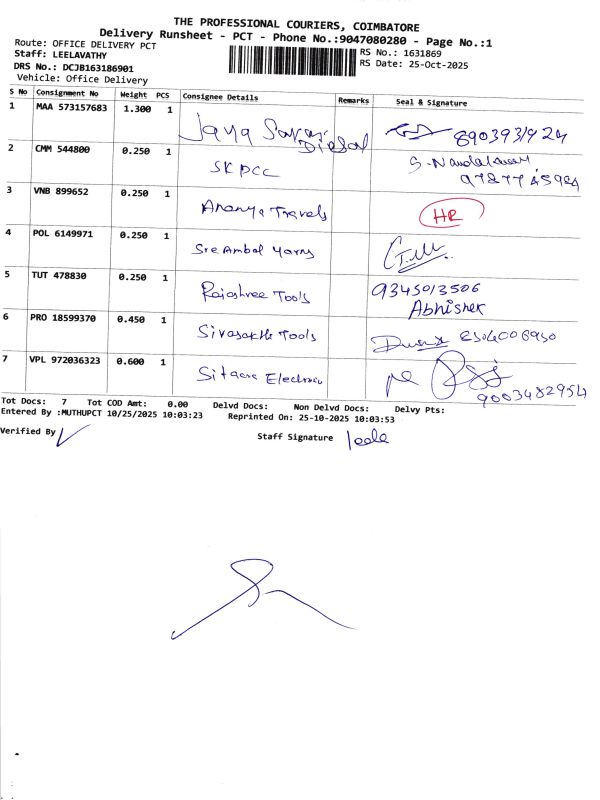 THE PROFESSIONAL COURIERS, COIMBATORE
Delivery Runsheet - PCT - Phone No.:9047080280 - Page No.:1
Route: OFFICE DELIVERY PCT
Staff: LEELAVATHY
DRS No.: DCJB163186901
Vehicle: Office Delivery
RS No.: 1631869
RS Date: 25-Oct-2025
S No Consignment No Weight PCS Consignee Details Remarks Seal & Signature
1 MAA 573157683 1.300 1 Jaya
2 CMM 544800 0.250 1 SKPCC
3 VNB 899652 0.250 1 Ananya Travels HR
4 POL 6149971 0.250 1 Sree Ambal Yarns
5 TUT 478830 0.250 1 Rajashree Tools 9345013506
Abhishek
6 PRO 18599370 0.450 1 Sivasakthi Tools
7 VPL 972036323 0.600 1 Sitara Electronic 9003482954
Tot Docs: 7 Tot COD Amt: 0.00 Delvd Docs: Non Delvd Docs: Delvy Pts:
Entered By :MUTHUPCT 10/25/2025 10:03:23 Reprinted On: 25-10-2025 10:03:53
Verified By
Staff Signature leela